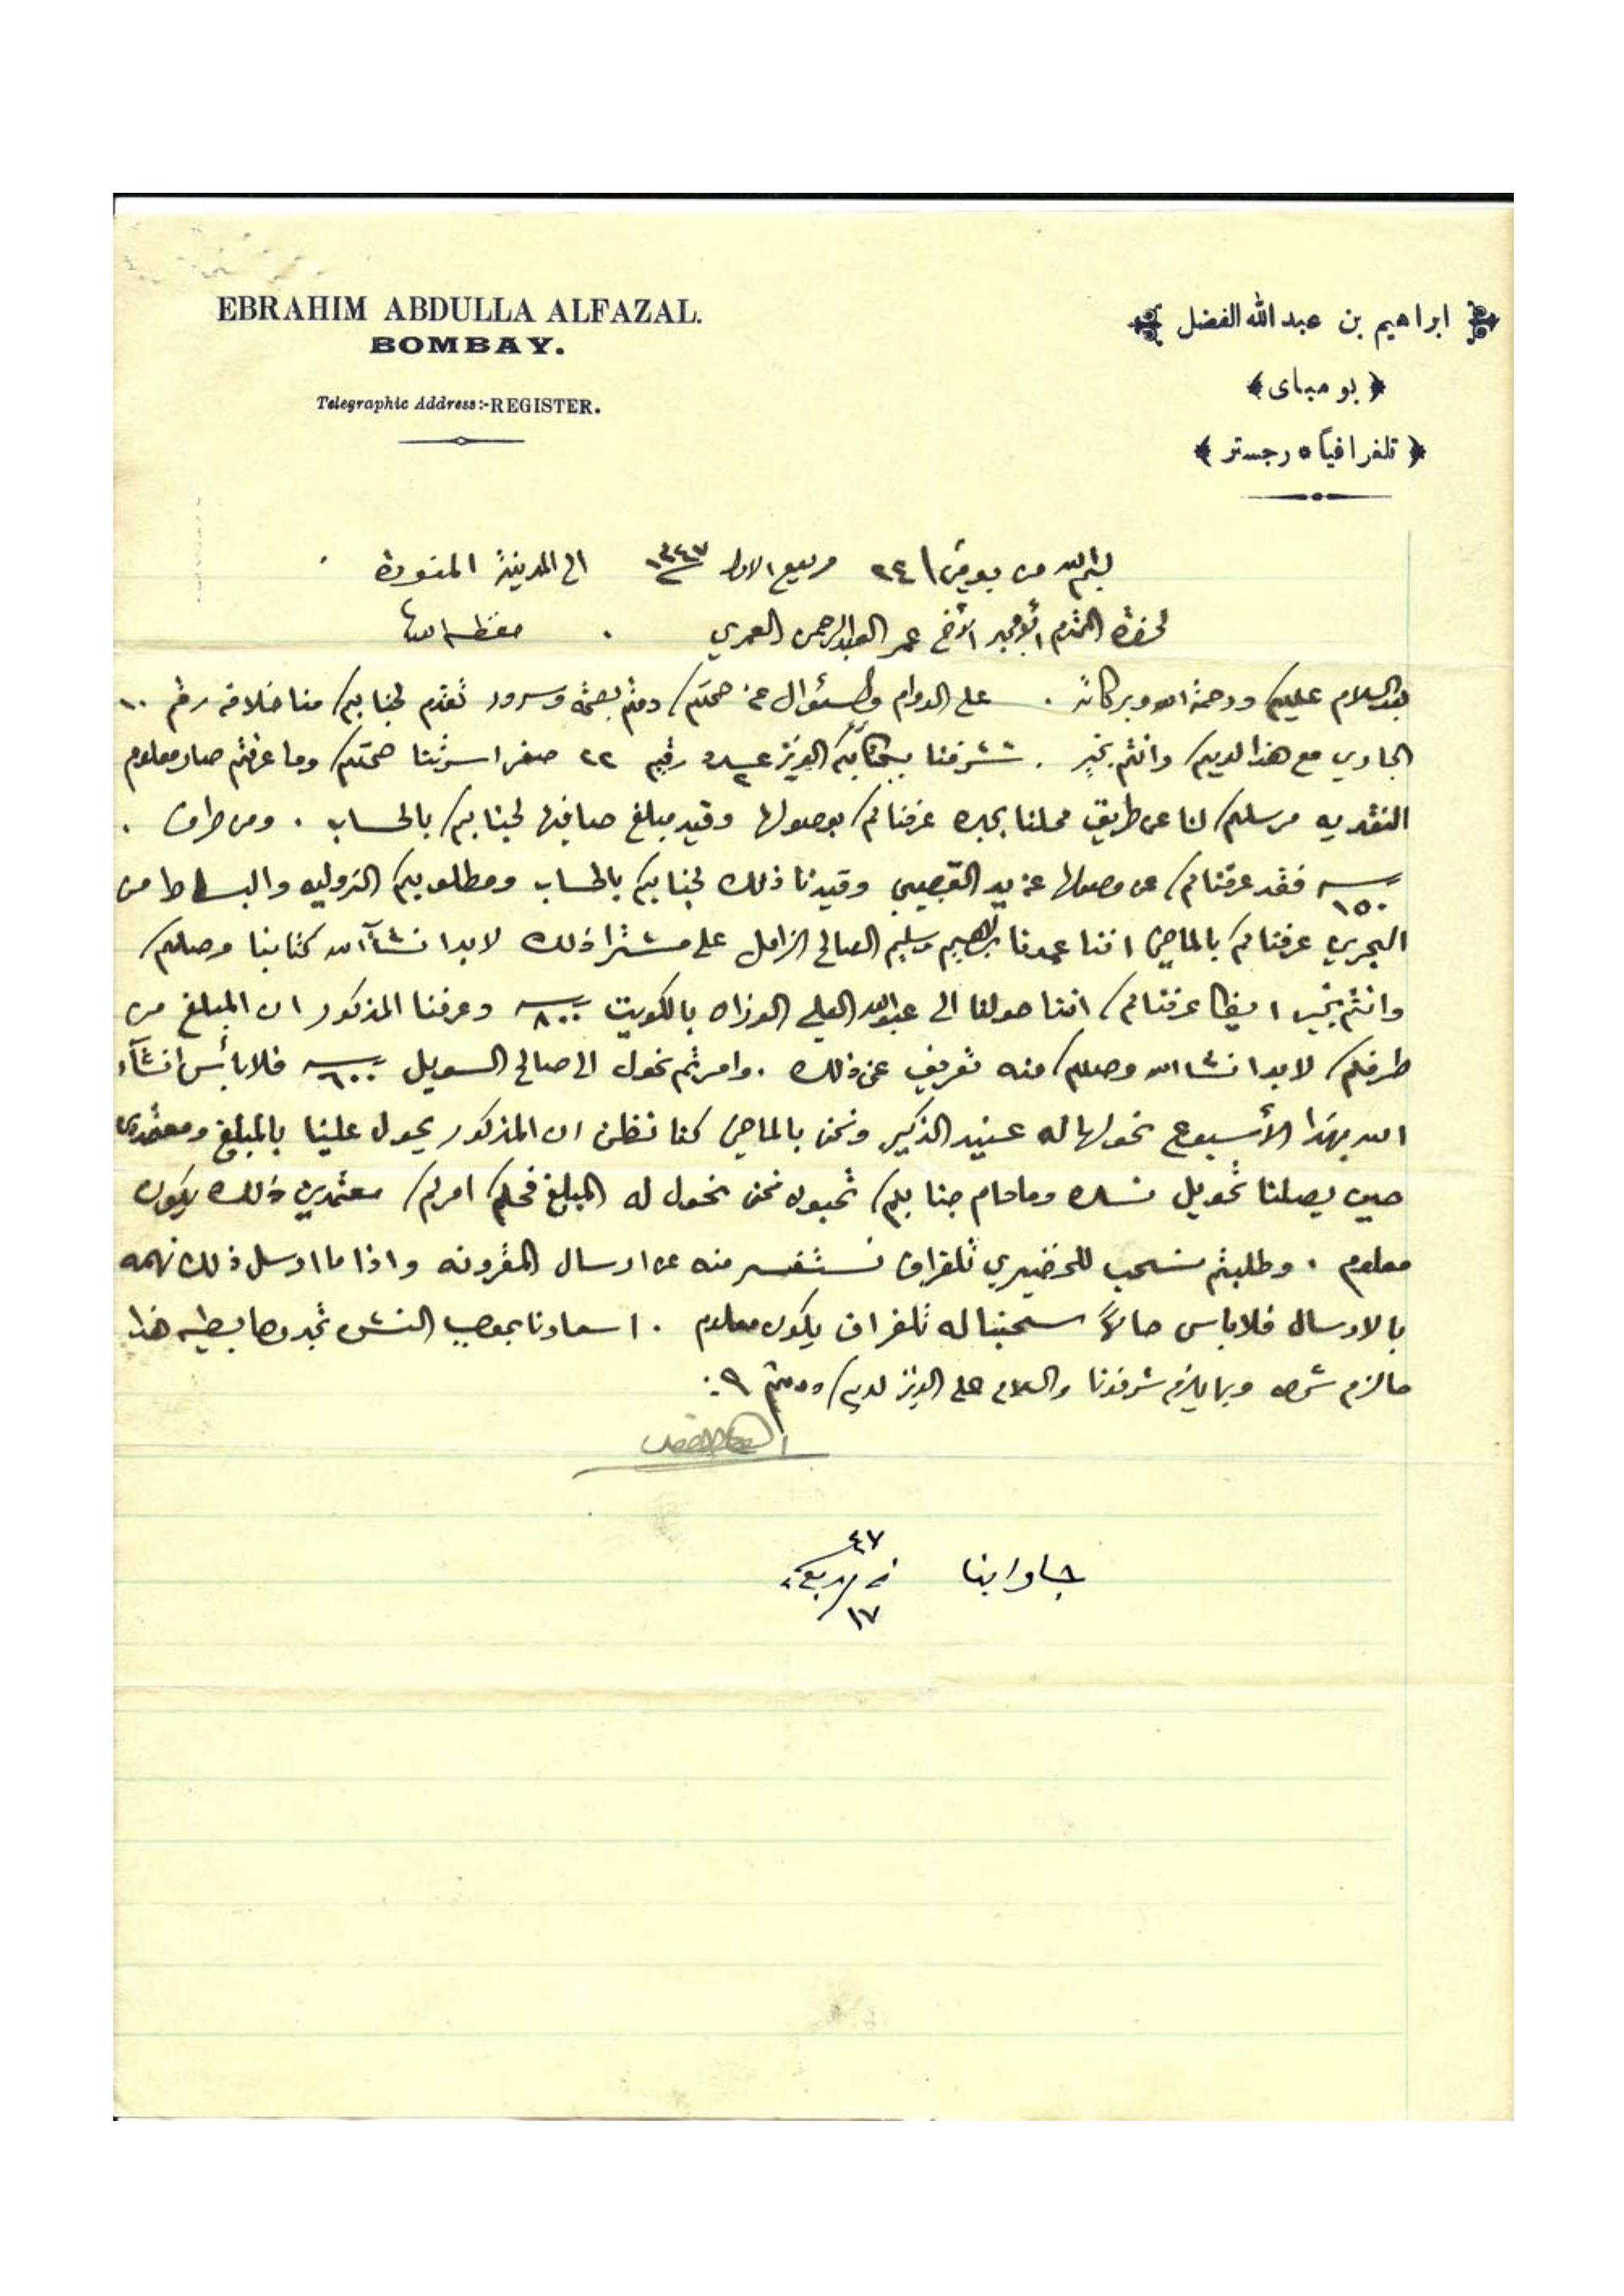 EBRAHIM ABDULLA ALFAZAL.
BOMBAY.
Telegraphic Address:-REGISTER.
ابراهيم بن عبد الله الفضل
﴿ بومباى ﴾
﴿ تلغرافياً • رجستر ﴾
٢٤ ربيع الاول ١٣٤٧ الى المدينة المنورة
لحضرة المحترم الأخ عمر العبدالرحمن العمري حفظه الله
بعد السلام عليكم ورحمة الله وبركاته . على الدوام والسئوال عن صحتكم دمتم بصحة وسرور تقدم لجنابكم منا خلافه رقم ١٠
الجاري مع هذا لديكم وانتم بخير . تشرفنا بكتابكم العزيز عدد ٢ رقيم ٢٢ صفر اسرتنا صحتكم وما عرفتم صار معلوم
النقديه مرسلكم لنا عن طريق محلنا بجده عرفناكم بوصولها وقيد مبلغ صافيها لجنابكم بالحساب . ومن طرف .
١٥٠ فقد عرفناكم عن وصولها عن يد القصيبي وقيدنا ذلك لجنابكم بالحساب ومطلوبكم الزوليه والبساط من
البحرين عرفناكم بالماضي اننا عمدنا ابراهيم وسليم الصالح الزامل على مشترا ذلك لابد انشاء الله كتابنا وصلكم
وانتم بخير ايضا عرفناكم اننا حولنا الى عبدالله العلي الوزان بالكويت ٨٠٠ وعرفنا المذكور ان المبلغ من
طرفكم لابد انشاالله وصلكم منه تعريف عن ذلك . وامرتم نحول الى صالح السويل ٦٠٠ فلا بأس انشآء
الله بهذا الأسبوع نحولها له عنيد الذكير ونحن بالماضي كنا نظن ان المذكور يحول علينا بالمبلغ ومعتمدين
حين يصلنا تحويل نسدده ومادام جنابكم تحبون نحن نحول له المبلغ فحكم امركم معتمدين ذلك يكون
معلوم . وطلبتم نسحب للخضيري تلغراف نستفسر منه عن ارسال المقرونه واذا ما ارسل ذلك نهمه
بالارسال فلا باس حالاً سحبنا له تلغراف يكون معلوم . اسعارنا بموجب النش تجدونها بطيه هذا
مالزم شرحه وبما يلزم شرفونا والسلام على العزيز لديكم ودمتم
جاوابنا
٤٧
١٧